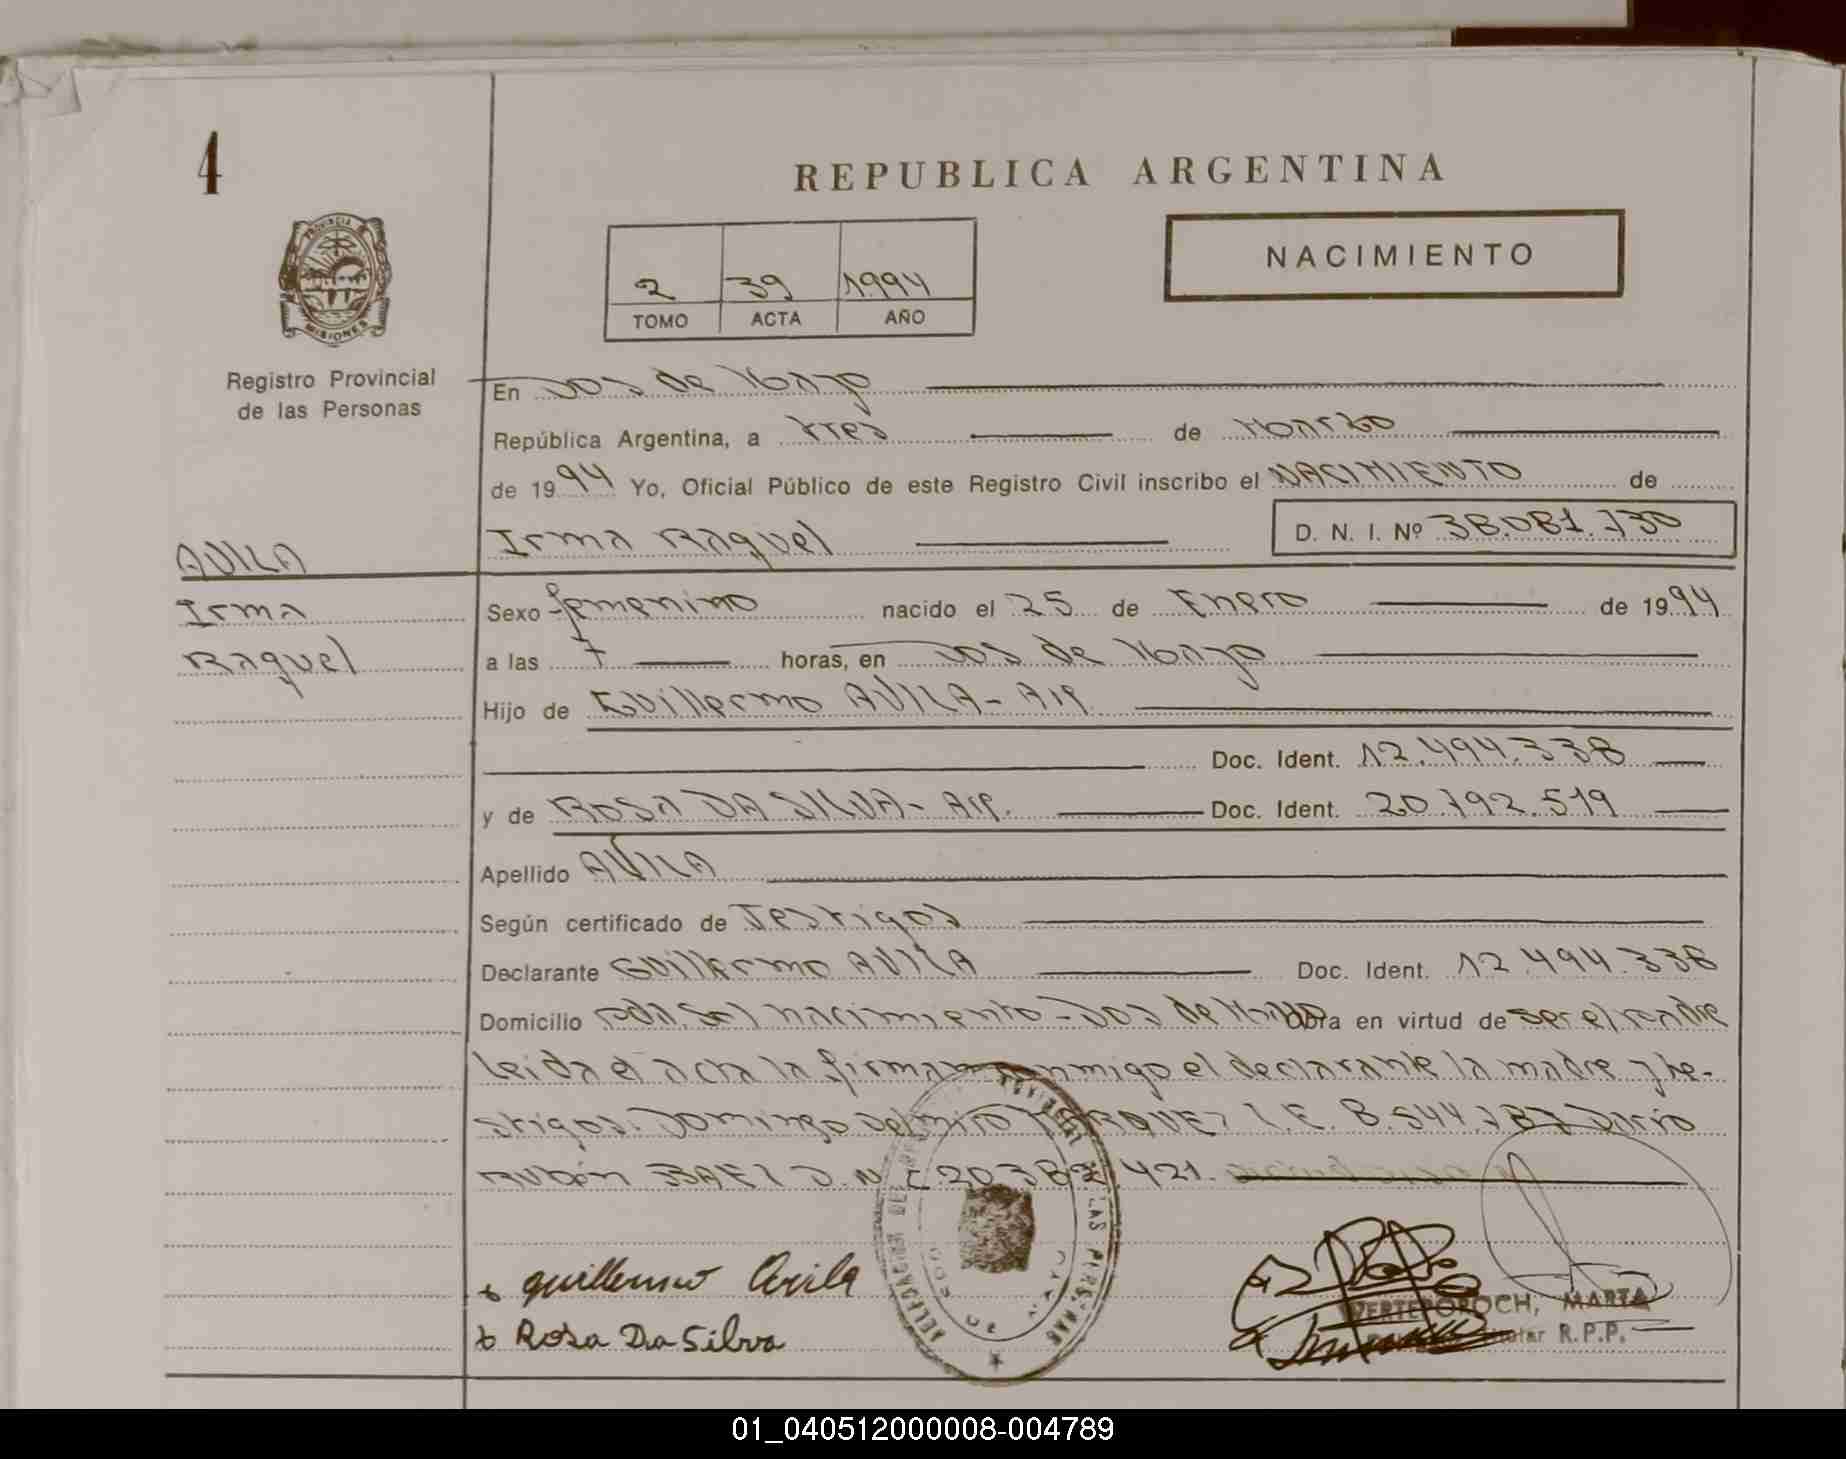 4
REPUBLICA ARGENTINA
NACIMIENTO
2 39 1994
TOMO ACTA AÑO
PROVINCIA DE
MISIONES
Registro Provincial
de las Personas
En Dos de Mayo
República Argentina, a tres de Marzo
de 1994 Yo, Oficial Público de este Registro Civil inscribo el NACIMIENTO de
Irma Raquel D. N. I. Nº 38.081.730
AVILA
Irma
Raquel
Sexo femenino nacido el 25 de Enero de 1994
a las 7 horas, en Dos de Mayo
Hijo de Guillermo AVILA - Arg.
Doc. Ident. 12.494.338
y de Rosa DA SILVA - Arg. Doc. Ident. 20.792.519
Apellido AVILA
Según certificado de Testigos
Declarante Guillermo AVILA Doc. Ident. 12.494.338
Domicilio nacimiento - Dos de Mayo Obra en virtud de ser el padre
leida el acta la firman conmigo el declarante la madre y te-
stigos: Domingo MARQUEZ L.E. 8.544.787 Dario
Rubén BAEZ D.N.I. 20.382.421.
guillermo Avila
Rosa Da Silva
MARTA
R.P.P.
01_040512000008-004789